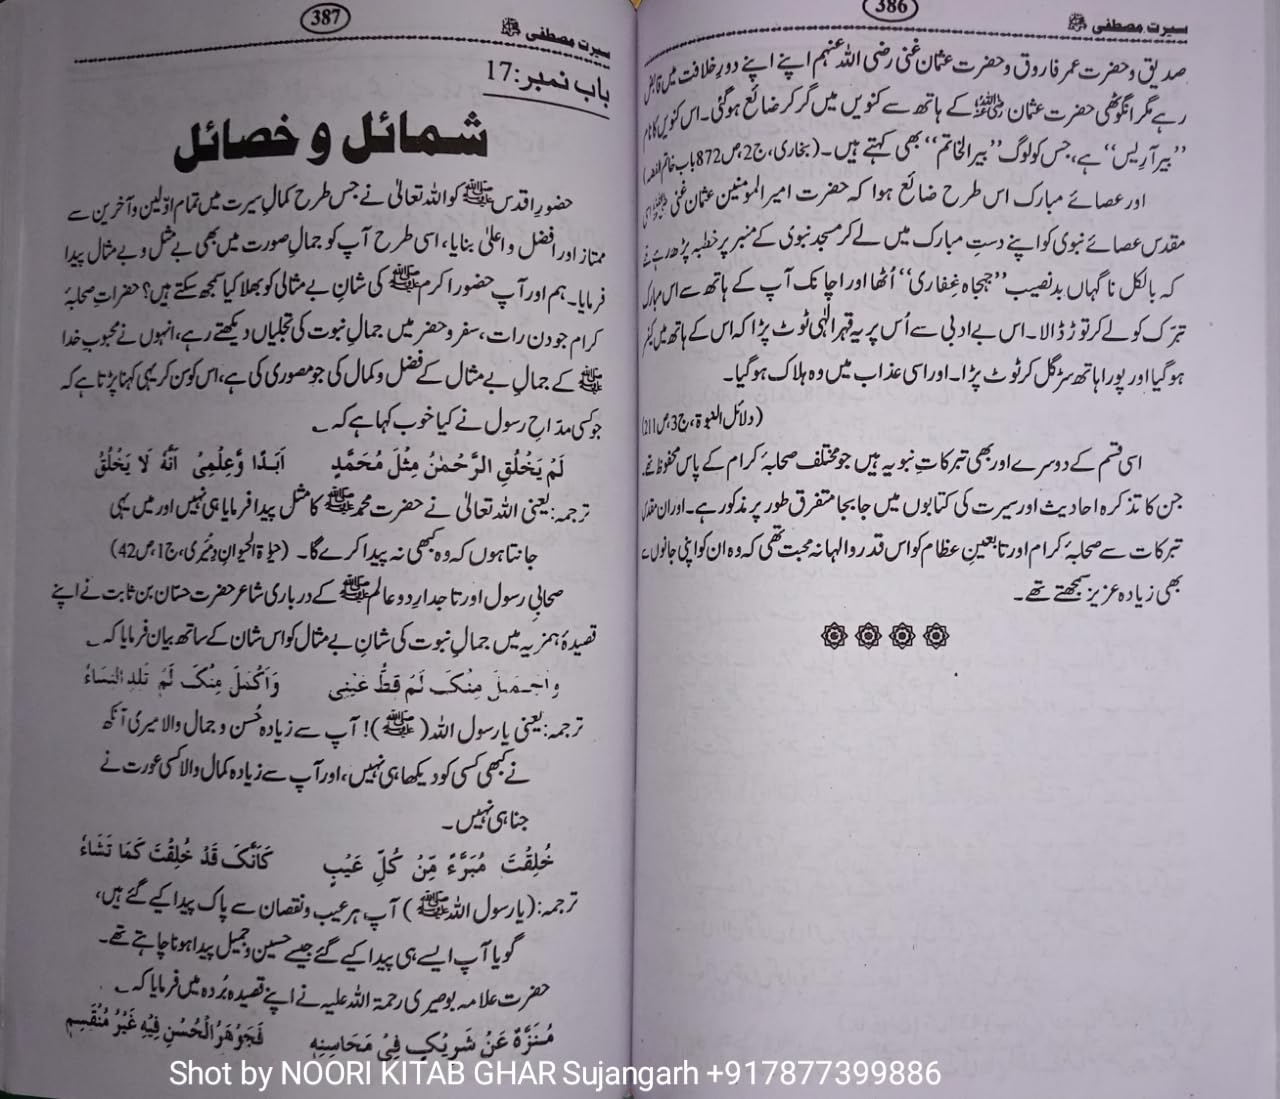 سیرت مصطفی ﷺ
386
صدیق و حضرت عمر فاروق و حضرت عثمان غنی رضی اللہ عنہم اپنے اپنے دورِ خلافت میں قابض
رہے مگر انگوٹھی حضرت عثمان ﷺ کے ہاتھ سے کنویں میں گر کر ضائع ہو گئی۔ اس کنویں کا نام
’’بیر آریس‘‘ ہے، جس کو لوگ ’’بیر الخاتم‘‘ بھی کہتے ہیں۔ (بخاری، ج2، ص872 باب خاتم الفضہ)
اور عصائے مبارک اس طرح ضائع ہوا کہ حضرت امیر المومنین عثمان غنی ﷺ اسی
مقدس عصائے نبوی کو اپنے دستِ مبارک میں لے کر مسجد نبوی کے منبر پر خطبہ پڑھ رہے تھے
کہ بالکل ناگہاں بدنصیب ’’جہجاہ غِفاری‘‘ اُٹھا اور اچانک آپ کے ہاتھ سے اس مبارک
تبرّک کو لے کر توڑ ڈالا۔ اس بے ادبی سے اُس پر یہ قہرِ الٰہی ٹوٹ پڑا کہ اس کے ہاتھ میں کینسر
ہو گیا اور پورا ہاتھ سڑ گل کر ٹوٹ پڑا۔ اور اسی عذاب میں وہ ہلاک ہو گیا۔
(دلائل النبوۃ، ج3، ص211)
اسی قسم کے دوسرے اور بھی تبرکاتِ نبویہ ہیں جو مختلف صحابۂ کرام کے پاس محفوظ تھے
جن کا تذکرہ احادیث اور سیرت کی کتابوں میں جا بجا متفرق طور پر مذکور ہے۔ اور ان مقدس
تبرکات سے صحابۂ کرام اور تابعینِ عظام کو اس قدر والہانہ محبت تھی کہ وہ ان کو اپنی جانوں سے
بھی زیادہ عزیز سمجھتے تھے۔
سیرت مصطفی ﷺ
387
باب نمبر:17
شمائل و خصائل
حضورِ اقدس ﷺ کو اللہ تعالیٰ نے جس طرح کمالِ سیرت میں تمام اوّلین و آخرین سے
ممتاز اور افضل و اعلیٰ بنایا، اسی طرح آپ کو جمالِ صورت میں بھی بے مثل و بے مثال پیدا
فرمایا۔ ہم اور آپ حضورِ اکرم ﷺ کی شانِ بے مثالی کو بھلا کیا سمجھ سکتے ہیں؟ حضراتِ صحابۂ
کرام جو دن رات، سفر و حضر میں جمالِ نبوت کی تجلیاں دیکھتے رہے، انہوں نے محبوبِ خدا
ﷺ کے جمالِ بے مثال کے فضل و کمال کی جو مصوری کی ہے، اس کو سن کر یہی کہنا پڑتا ہے کہ
جو کسی مدّاحِ رسول نے کیا خوب کہا ہے کہ ؎
لَمْ یَخْلُقِ الرَّحْمٰنُ مِثْلَ مُحَمَّدٍ اَبَدًا وَّعِلْمِیْ اَنَّہٗ لَا یَخْلُقُ
ترجمہ: یعنی اللہ تعالیٰ نے حضرت محمد ﷺ کا مثل پیدا فرمایا ہی نہیں اور میں یہی
جانتا ہوں کہ وہ کبھی نہ پیدا کرے گا۔ (حیٰوۃ الحیوان دمیری، ج1، ص42)
صحابیِ رسول اور تاجدارِ دو عالم ﷺ کے درباری شاعر حضرت حسّان بن ثابت نے اپنے
قصیدۂ ہمزیہ میں جمالِ نبوت کی شانِ بے مثال کو اس شان کے ساتھ بیان فرمایا کہ ؎
وَاَجْمَلَ مِنْکَ لَمْ تَرَ قَطُّ عَیْنِیْ وَاَکْمَلَ مِنْکَ لَمْ تَلِدِ النِّسَاءُ
ترجمہ: یعنی یا رسول اللہ (ﷺ)! آپ سے زیادہ حُسن و جمال والا میری آنکھ
نے کبھی کسی کو دیکھا ہی نہیں، اور آپ سے زیادہ کمال والا کسی عورت نے
جنا ہی نہیں۔
خُلِقْتَ مُبَرَّءً مِّنْ کُلِّ عَیْبٍ کَاَنَّکَ قَدْ خُلِقْتَ کَمَا تَشَاءُ
ترجمہ: (یا رسول اللہ ﷺ) آپ ہر عیب و نقصان سے پاک پیدا کیے گئے ہیں،
گویا آپ ایسے ہی پیدا کیے گئے جیسے حسین و جمیل پیدا ہونا چاہتے تھے۔
حضرت علامہ بوصیری رحمۃ اللہ علیہ نے اپنے قصیدہ بُردہ میں فرمایا کہ ؎
مُنَزَّہٌ عَنْ شَرِیْکٍ فِیْ مَحَاسِنِہٖ فَجَوْھَرُ الْحُسْنِ فِیْہِ غَیْرُ مُنْقَسِمٖ
Shot by NOORI KITAB GHAR Sujangarh +917877399886